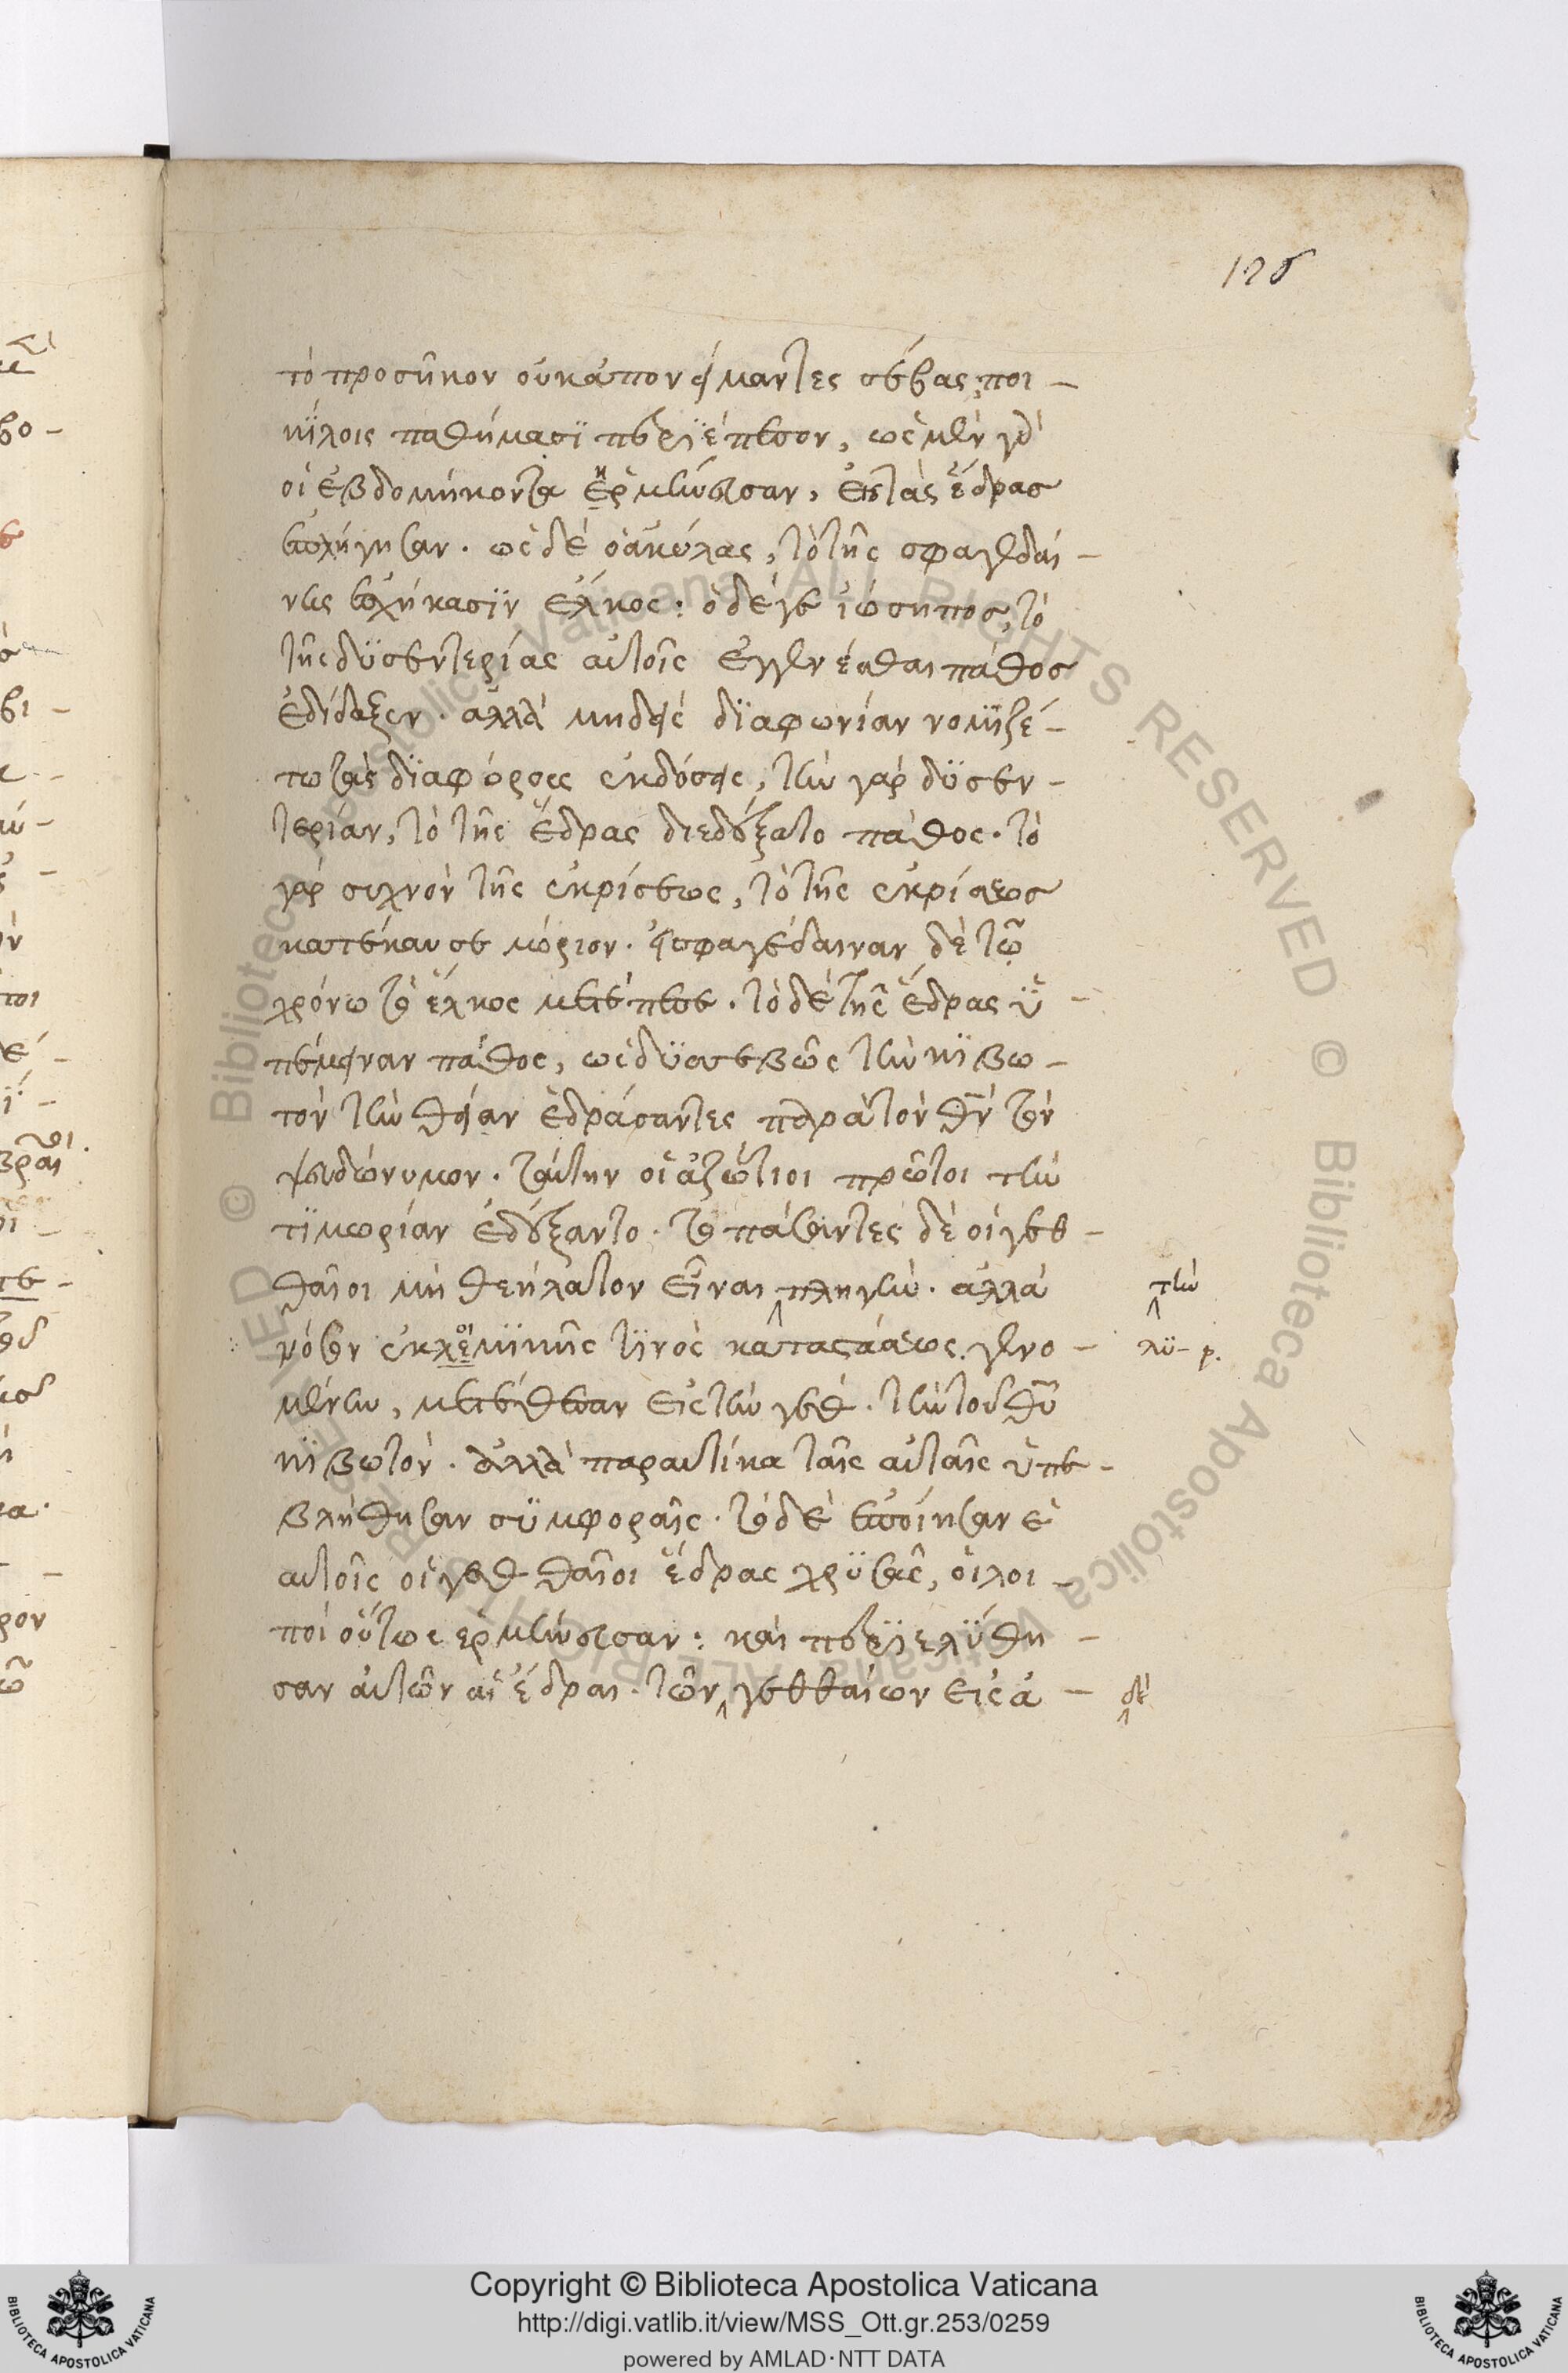 126
τὸ προσῆκον οὐκ ἀπονείμαντες σέβας, ποι-
κίλοις παθήμασϊ περιέπεσον, ὡς μὲν γὰρ
οἱ ἑβδομήκοντα ἑρμήνευσαν, εἰς τὰς ἕδρας
ἐπλήγησαν. ὡς δὲ ὁ ἀκύλας, τὸ τῆς φαγεδαί-
νης ἐσχήκασϊν ἕλκος: ὁ δέ γε ἰώσηπος, τὸ
τῆς δϋσεντερίας αὐτοῖς ἐγγενέσθαι πάθος
ἐδίδαξεν. ἀλλὰ μηδεὶς δϊαφωνίαν νομϊζέ-
τω τὰς δϊαφόρους ἐκδόσεις, τὴν γὰρ δϋσεν-
τερίαν, τὸ τῆς ἕδρας διεδέξατο πάθος. τὸ
γὰρ συχνὸν τῆς ἐκκρίσεως, τὸ τῆς ἐκκρίσεως
κατέκαυσε μόριον. εἰς φαγέδαιναν δὲ τῶ
χρόνω τὸ ἕλκος μετέπεσε. τὸ δὲ τῆς ἕδρας ὑ-
πέμειναν πάθος, ὡς δϋσσεβῶς τὴν κϊβω-
τὸν τὴν θείαν ἑδράσαντες παρὰ τὸν θν τὸν
ψευδώνυμον. ταύτην οἱ ἀζώτιοι πρῶτοι τὴν
τϊμωρίαν ἐδέξαντο. τοπάσαντες δὲ οἱ γεθ-
θαῖοι μὴ θεήλατον εἶναι πληγὴν. ἀλλὰ
νόσον ἐκ λοιμϊκῆς τϊνὸς καταστάσεως γενο-
μένην, μετέθεσαν εἰς τὴν γεθ. τὴν τοῦ θυ
κϊβωτόν. ἀλλὰ παραυτίκα ταῖς αὐταῖς ὑπε-
βλήθησαν σϋμφοραῖς. τὸ δὲ ἐποίησαν ἑ
αυτοῖς οἱ γεθθαῖοι ἕδρας χρϋσᾶς, οἱ λοι-
ποὶ οὕτως ἑρμήνευσαν: καὶ περϊελύθη-
σαν αὐτῶν αἱ ἕδραι. τῶν γεθθαίων εἰς ἀ-
τὴν
λϋ- ρ.
δὲ
Copyright © Biblioteca Apostolica Vaticana
http://digi.vatlib.it/view/MSS_Ott.gr.253/0259
powered by AMLAD·NTT DATA